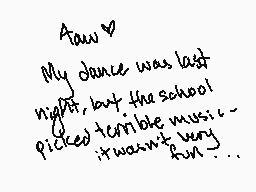 Aaw♥
My dance was last
night, but the school
picked terrible music-
it wasn't very
fun...